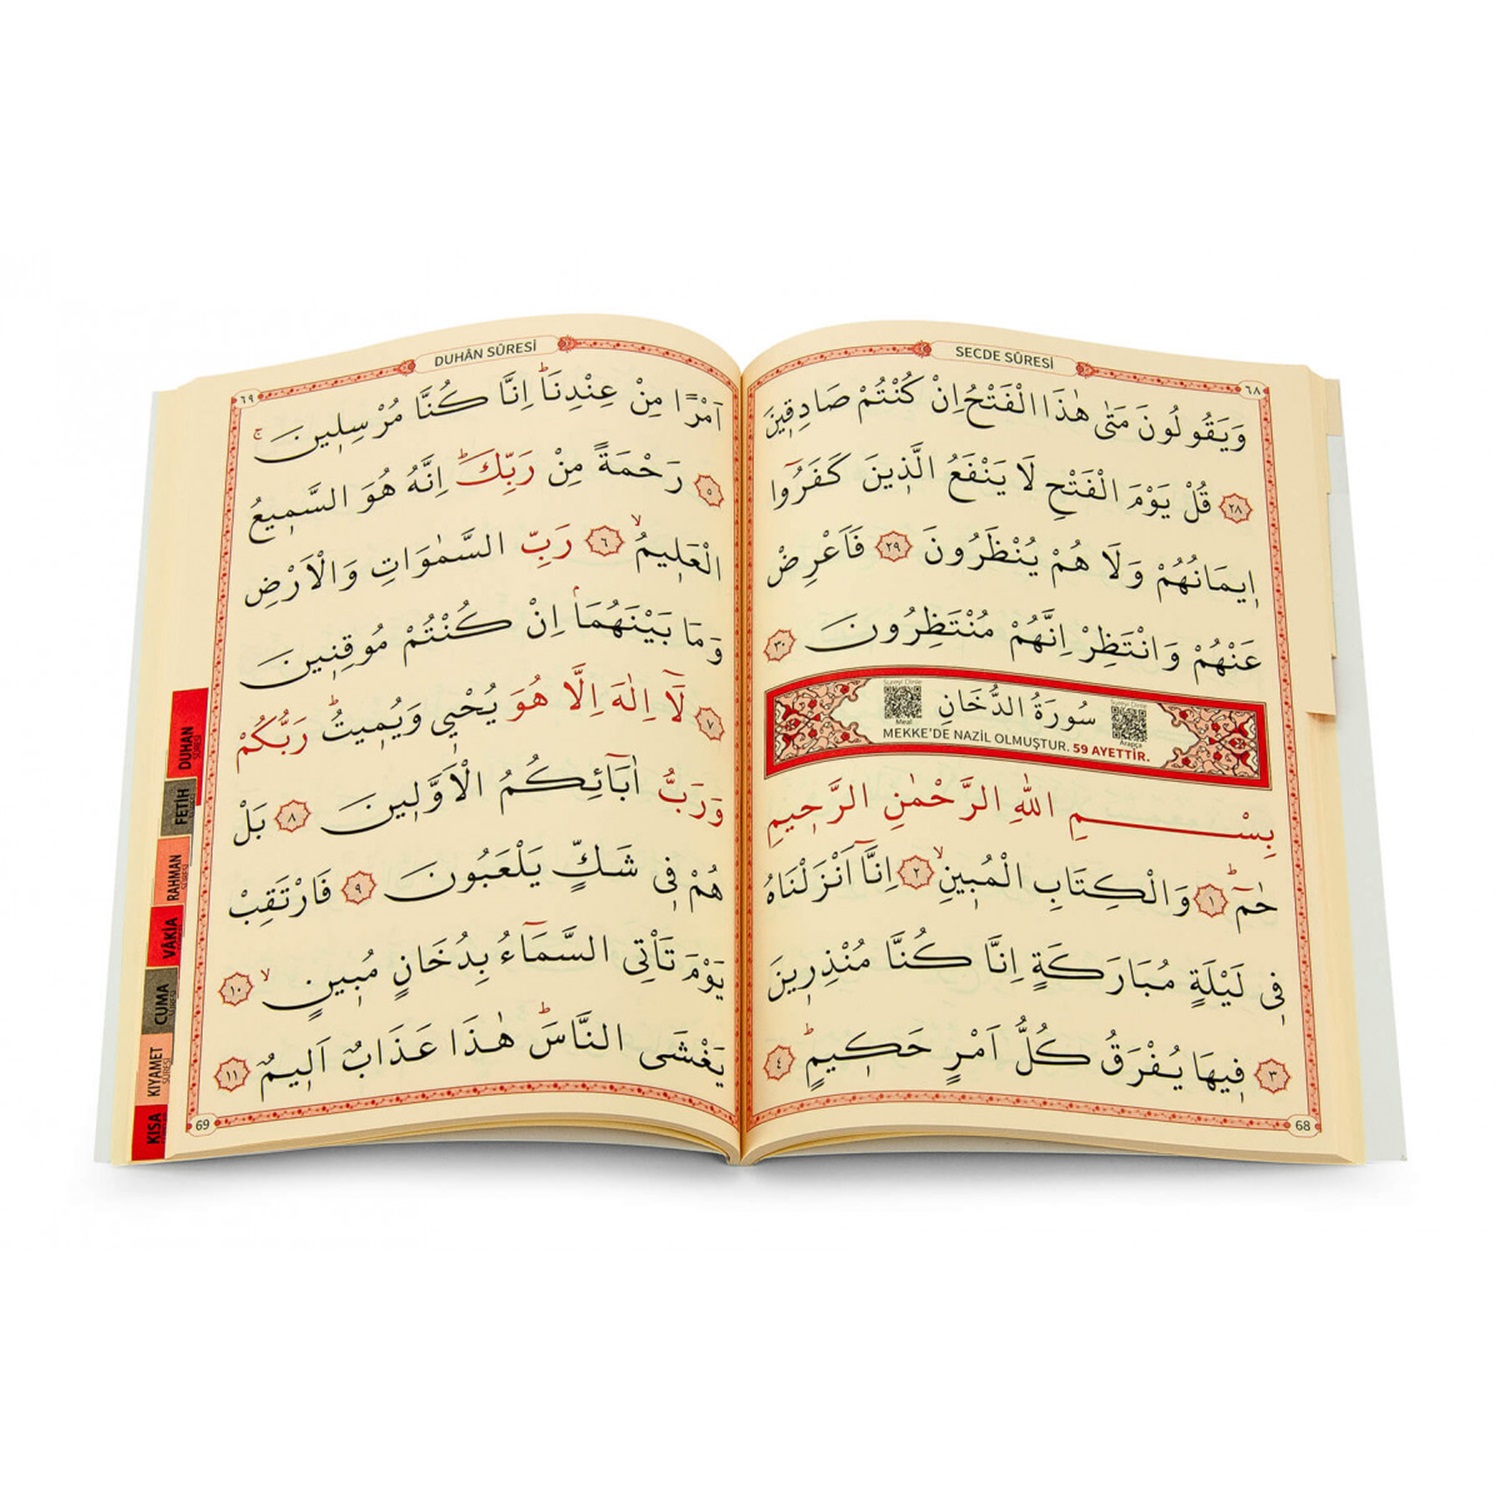 SECDE SÛRESİ
٦٨
وَيَقُولُونَ مَتٰى هٰذَا الْفَتْحُ اِنْ كُنْتُمْ صَادِقٖينَ
٢٨ قُلْ يَوْمَ الْفَتْحِ لَا يَنْفَعُ الَّذٖينَ كَفَرُٓوا
اٖيمَانُهُمْ وَلَا هُمْ يُنْظَرُونَ ٢٩ فَاَعْرِضْ
عَنْهُمْ وَانْتَظِرْ اِنَّهُمْ مُنْتَظِرُونَ ٣٠
Sureyi Dinle
Meal
سُورَةُ الدُّخَانِ
Sureyi Dinle
Arapça
MEKKE'DE NAZİL OLMUŞTUR. 59 AYETTİR.
بِسْمِ اللّٰهِ الرَّحْمٰنِ الرَّحٖيمِ
حٰمٓ ؕ ١ وَالْكِتَابِ الْمُبٖينِ ۙ ٢ اِنَّٓا اَنْزَلْنَاهُ
فٖى لَيْلَةٍ مُبَارَكَةٍ اِنَّا كُنَّا مُنْذِرٖينَ
٣ فٖيهَا يُفْرَقُ كُلُّ اَمْرٍ حَكٖيمٍ ؕ ٤
68
DUHÂN SÛRESİ
٦٩
اَمْرًا مِنْ عِنْدِنَا ؕ اِنَّا كُنَّا مُرْسِلٖينَ ۚ
٥ رَحْمَةً مِنْ رَبِّكَ ؕ اِنَّهُ هُوَ السَّمٖيعُ
الْعَلٖيمُ ۙ ٦ رَبِّ السَّمٰوَاتِ وَالْاَرْضِ
وَمَا بَيْنَهُمَا ۢ اِنْ كُنْتُمْ مُوقِنٖينَ
٧ لَٓا اِلٰهَ اِلَّا هُوَ يُحْيٖى وَيُمٖيتُ ؕ رَبُّكُمْ
وَرَبُّ اٰبَٓائِكُمُ الْاَوَّلٖينَ ٨ بَلْ
هُمْ فٖى شَكٍّ يَلْعَبُونَ ٩ فَارْتَقِبْ
يَوْمَ تَاْتِى السَّمَٓاءُ بِدُخَانٍ مُبٖينٍ ۙ ١٠
يَغْشَى النَّاسَ ؕ هٰذَا عَذَابٌ اَلٖيمٌ ١١
69
DUHAN SÛRESİ
FETİH
RAHMAN SÛRESİ
VÂKİA
CUMA
KIYAMET SÛRESİ
KISA